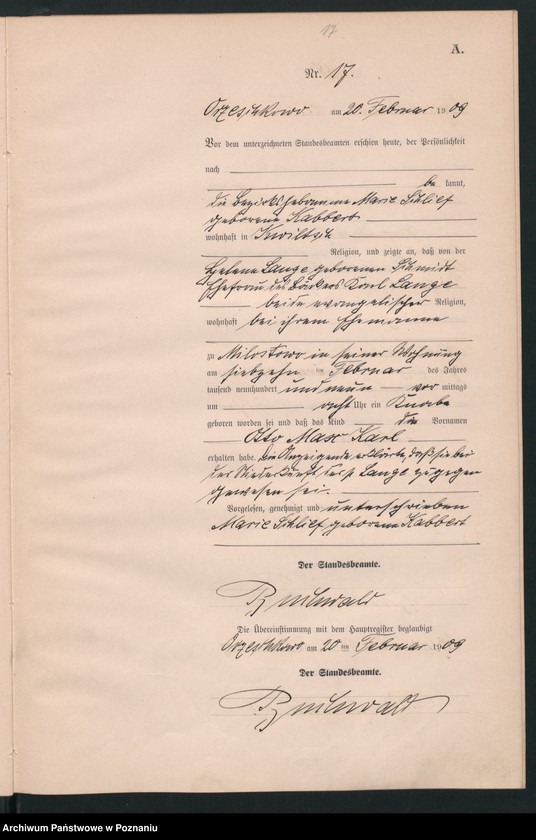 17
A.
Nr. 17.
Orzeschkowo am 20. Februar 1909
Vor dem unterzeichneten Standesbeamten erschien heute, der Persönlichkeit
nach
be kannt,
die Bezirkshebamme Marie Schlief
geborene Kabbert
wohnhaft in Kwiltsch
Religion, und zeigte an, daß von der
Helene Lange geborenen Schmidt
Ehefrau des Bäckers Karl Lange
beide evangelischer Religion,
wohnhaft bei ihrem Ehemanne
zu Milostowo in seiner Wohnung
am siebzehn ten Februar des Jahres
tausend neunhundert und neun vor mittags
um acht Uhr ein Knabe
geboren worden sei und daß das Kind die Vornamen
Otto Max Karl
erhalten habe. Die Anzeigende erklärte, daß sie bei
der Niederkunft der p. Lange zugegen
gewesen sei.
Vorgelesen, genehmigt und unterschrieben
Marie Schlief geborene Kabbert
Der Standesbeamte.
Buchwald
Die Übereinstimmung mit dem Hauptregister beglaubigt
Orzeschkowo am 20 ten Februar 1909
Der Standesbeamte.
Buchwald
Archiwum Państwowe w Poznaniu